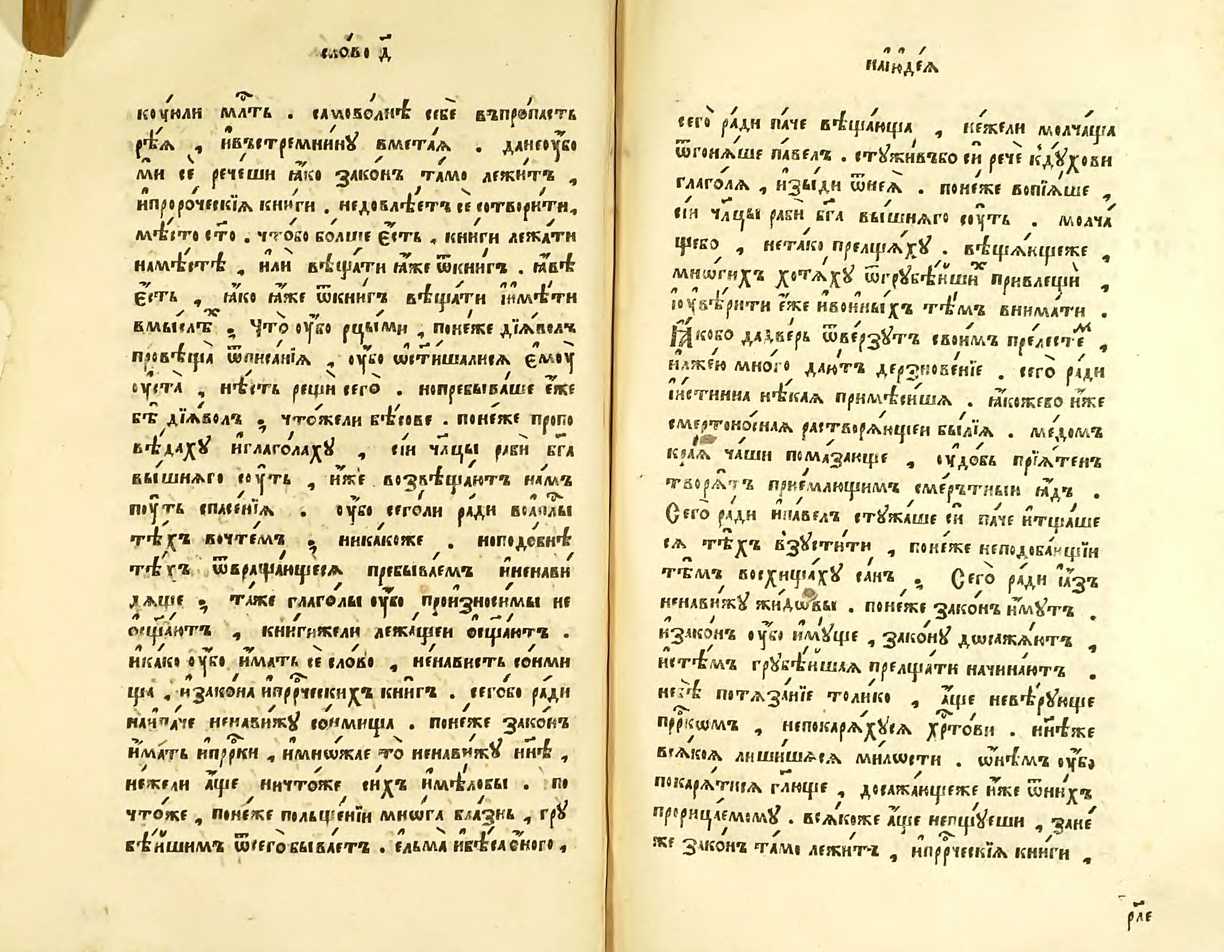 сло́во д҃
коу́пли мл҃ть . самово́лнѣ себѐ въпро́пасть
рѣ́ѧ , и҆въстремни́нꙋ вмета́ѧ . данеоу҆́бо
ми се̏ рече́ши ꙗ҆́ко зако́нъ та́мо лежи́тъ ,
и҆проро́ческїѧ кни́ги . недовлѣ́етъ се̏ сотвори́ти ,
мѣ́сто ст҃о . что́бо бо́лше є҆́сть , кни́ги лежа́ти
намѣ́стѣ , и҆лѝ вѣща́ти ꙗ҆́же ѿкни́гъ . ꙗ҆́вѣ
є҆́сть , ꙗ҆́ко ꙗ҆́же ѿкни́гъ вѣща́ти и҆и҆мѣ́ти
вмы́слѣⷯ ; Что̀ оу҆́бо рцы́ми , поне́же дїѧ́волъ
провѣща̀ ѿписа́нїѧ , оу҆́бо ѡ҆стиша́лисѧ є҆моу̀
оу҆ста̀ , нѣ́сть рещѝ сего̀ . нопребыва́ше є҆́же
бѣ̀ дїѧ́волъ ; что́жели бѣ́сове . поне́же пропо
вѣ́дахꙋ и҆глаго́лахꙋ , сїѝ чл҃цы рабѝ бг҃а
вы́шнѧго соу́ть , и҆́же возвѣща́ютъ на́мъ
поу́ть спасе́нїѧ . оу҆́бо сего́ли ра́ди воѡ҆плы̀
тѣ́хъ вочте́мъ ; ника́коже . ноподо́бнѣ
тѣ́хъ ѿвраща́ющесѧ пребыва́емъ и҆ненави
дѧ́ще ; та́же глаго́лы оу҆́бо произноси́мы не
ѡ҆сщ҃а́ютъ , кни́гижели лежа́щеи ѡ҆сщ҃а́ютъ .
и҆ка́ко оу҆́бо и҆́мать се̏ сло́во , не́нависть со́нми
ща , и҆зако́на и҆прⷪ҇рческихъ кни́гъ . сего́бо ра́ди
наипа́че ненави́жꙋ со́нмища . поне́же зако́нъ
и҆́мать и҆прⷪ҇рки , и҆мно́жае то̀ ненави́жꙋ нн҃ѣ ,
не́жели а҆́ще ничто́же си́хъ и҆мѣ́лобы . по
что́же , поне́же полще́нїи мнѡ́га бла́знь , грꙋ
бѣ́йшимъ ѿсего̀быва́етъ . є҆лма̀ и҆бѣ́сано́го ,
наїю҆де́ѧ
сего̀ ра́ди па́че вѣща́юща , не́жели молча́ща
ѿгонѧ́ше па́велъ . стꙋжи́въбо сѝ рече̏ к̾дꙋ́хови
глаго́лѧ , и҆зы́ди ѿнеѧ̀ . поне́же вопїѧ́ше ,
сїѝ чл҃цы рабѝ бг҃а вы́шнѧго соу́ть . молча́
щебо , нета́ко прелщѧ́хꙋ . вѣщѧ́ющеже ,
мнѡ́гихъ хотѧ́хꙋ ѿгрꙋбѣ́йшиⷯ привлещѝ ,
и҆оу҆вѣ́рити є҆́же и҆во́йныхъ тѣ́мъ внима́ти .
Ꙗ҆́кобо дадве́рь ѿве́рзꙋтъ свои́мъ преле́стеⷨ ,
и҆лже́ю мно́го даю́тъ дерзнове́нїе . сего̀ ра́ди
и҆́стинна нѣ́каѧ примѣси́шѧ . ꙗ҆́кожебо и҆́же
смертоно́снаѧ растворѧ́ющеи бы́лїѧ . ме́домъ
краѧ̀ ча́ши пома́завше , оу҆до́бь прїѧ́тен
творѧ́тъ прие́млющимъ сме́рътныи ꙗ҆́дъ .
Сего̀ ра́ди и҆па́велъ стꙋжа́ше сѝ па́че и҆тща́ше
сѧ тѣ́хъ в̾зꙋсти́ти , поне́же неподоба́ющїи
тѣ́мъ восхища́хꙋ са́нъ . Сего̀ ра́ди и҆а҆́зъ
ненави́жꙋ жидѡ́вы . поне́же зако́нъ и҆́мꙋтъ .
и҆зако́нъ оу҆́бо и҆мꙋ́ще , зако́нꙋ досажѧ́ютъ ,
и҆стѣ́мъ грꙋбѣ́йшаѧ прелща́ти начина́ютъ .
небѣ̀ потѧза́нїе толи́ко , а҆́ще невѣ́рꙋюще
прⷪ҇ркомъ , непокарѧ́хꙋсѧ хрⷭ҇то́ви . нн҃ѣже
всѧ́коѧ лиши́шасѧ ми́лости . ѡ҆нѣ́мъ оу҆́бо
покарѧ́тисѧ гл҃юще , досажа́ющеже и҆́же ѿни́хъ
прорица́емомꙋ . всѧ́коже а҆́ще непщꙋ́еши , зане́
же зако́нъ та́мо лежи́тъ , и҆прⷪ҇рческїѧ кни́ги ,
рл҃е